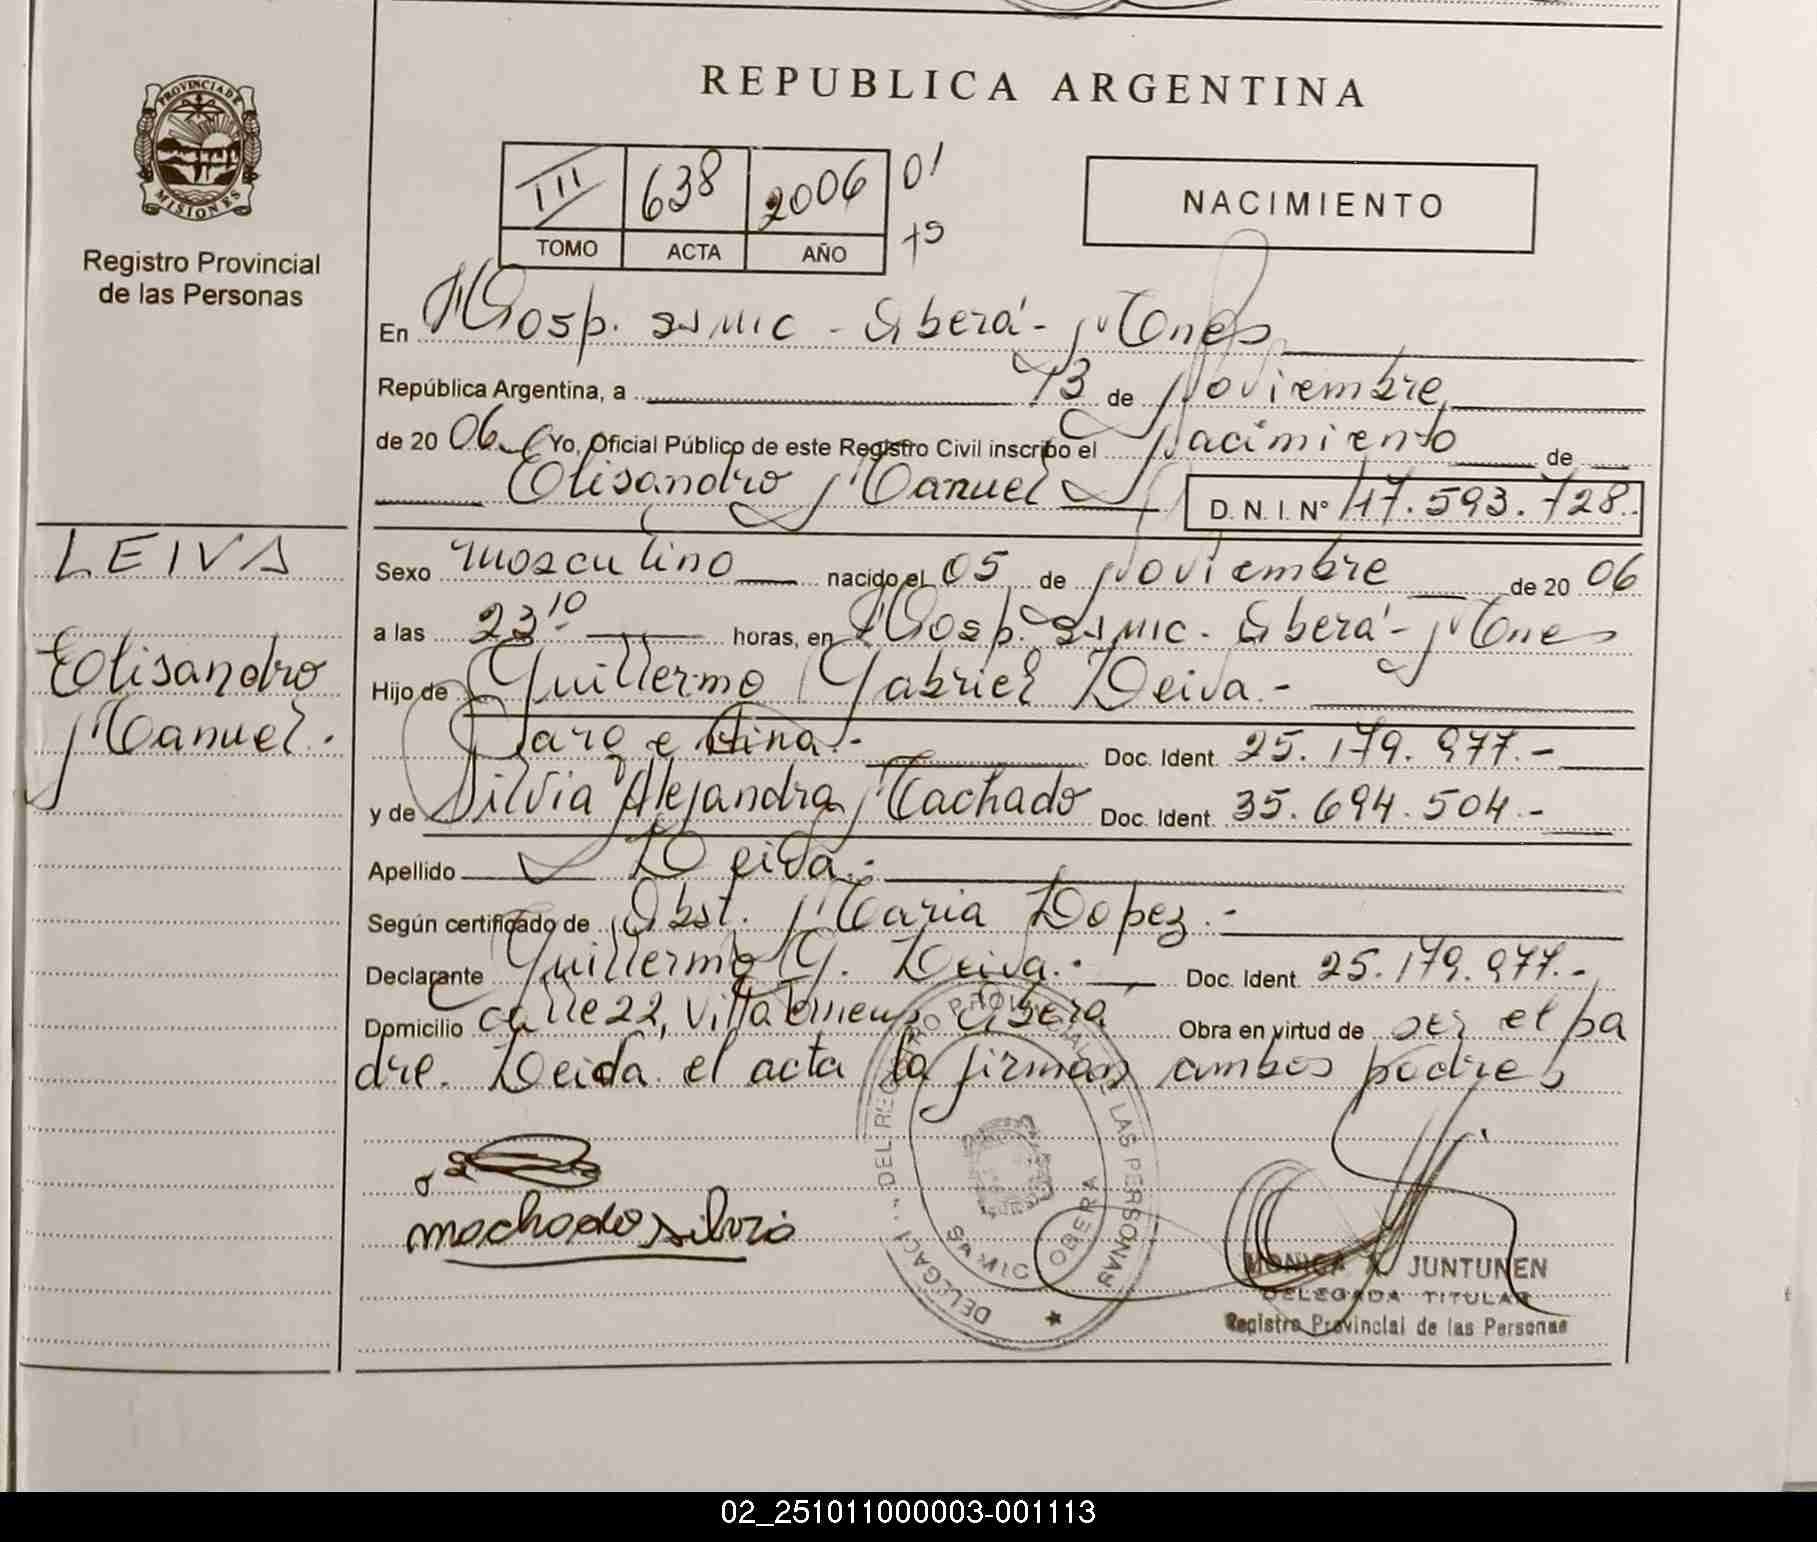 REPUBLICA ARGENTINA
PROVINCIA DE
MISIONES
Registro Provincial
de las Personas
III 638 2006 01
TOMO ACTA AÑO
NACIMIENTO
En Hosp. SAMIC - Oberá - Mnes
República Argentina, a 13 de Noviembre
de 2006. Yo, Oficial Público de este Registro Civil inscribo el Nacimiento de
Elisandro Manuel D. N. I. N° 47.593.728.
LEIVA
Elisandro
Manuel.
Sexo masculino nacido el 05 de Noviembre de 20 06
a las 23 10 horas, en Hosp. SAMIC - Oberá - Mnes
Hijo de Guillermo Gabriel Leiva.-
argentina.- Doc. Ident. 25.179.977.-
y de Silvia Alejandra Machado Doc. Ident. 35.694.504.-
Apellido Leiva.-
Según certificado de Obst. Maria Lopez.-
Declarante Guillermo G. Leiva.- Doc. Ident. 25.179.977.-
Domicilio calle 22, Villa Oberá Obra en virtud de ser el pa
dre. Leida el acta la firman ambos padres
machado silvia
DEL REGISTRO PROVINCIAL DE LAS PERSONAS
SAMIC OBERA
MONICA JUNTUNEN
DELEGADA TITULAR
Registro Provincial de las Personas
02_251011000003-001113